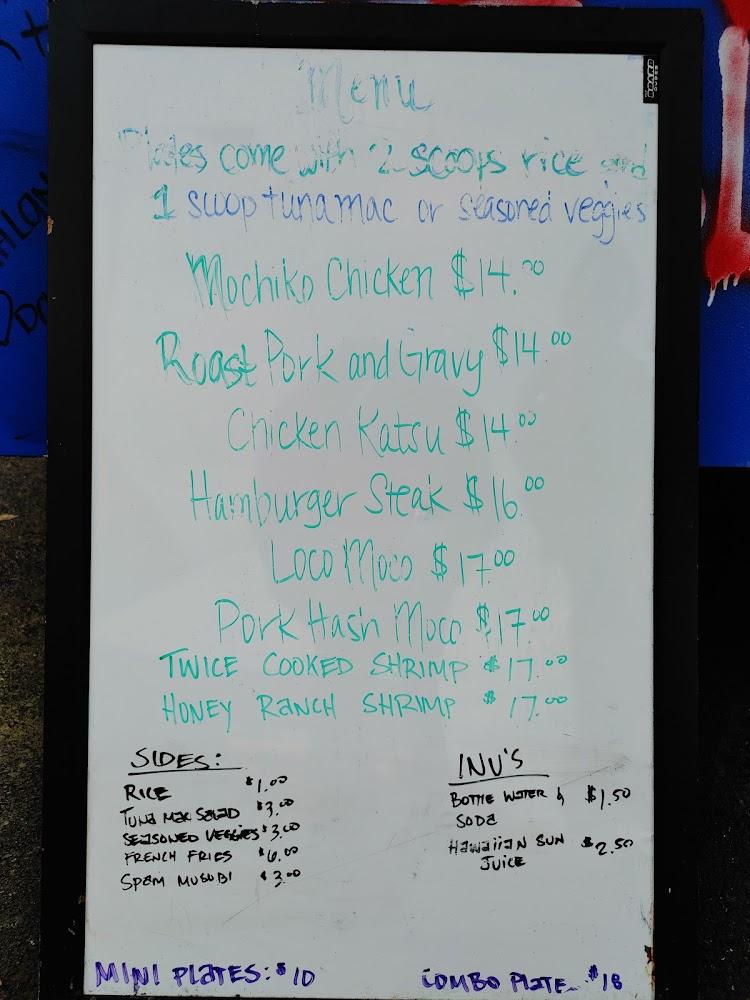 Menu
Plates come with 2 scoops rice and
1 scoop tuna mac or seasoned veggies
Mochiko Chicken $14.00
Roast Pork and Gravy $14.00
Chicken Katsu $14.00
Hamburger Steak $16.00
Loco Moco $17.00
Pork Hash Moco $17.00
TWICE COOKED SHRIMP $17.00
HONEY RANCH SHRIMP $17.00
SIDES:
RICE $1.00
TUNA MAC SALAD $3.00
SEASONED VEGGIES $3.00
FRENCH FRIES $6.00
SPAM MUSUBI $3.00
INU'S
BOTTLE WATER & $1.50
SODA
HAWAIIAN SUN $2.50
JUICE
MINI PLATES: $10
COMBO PLATE $18